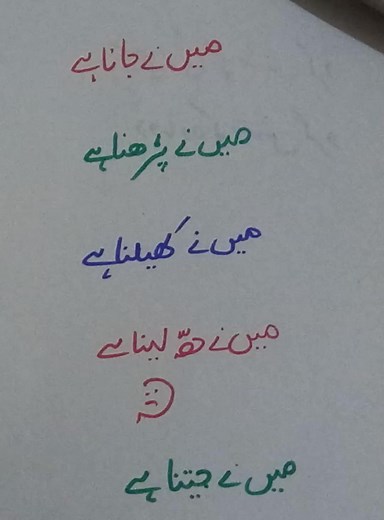 میں نے جانا ہے
میں نے پڑھنا ہے
میں نے کھیلنا ہے
میں نے حصہ لینا ہے
میں نے جیتنا ہے